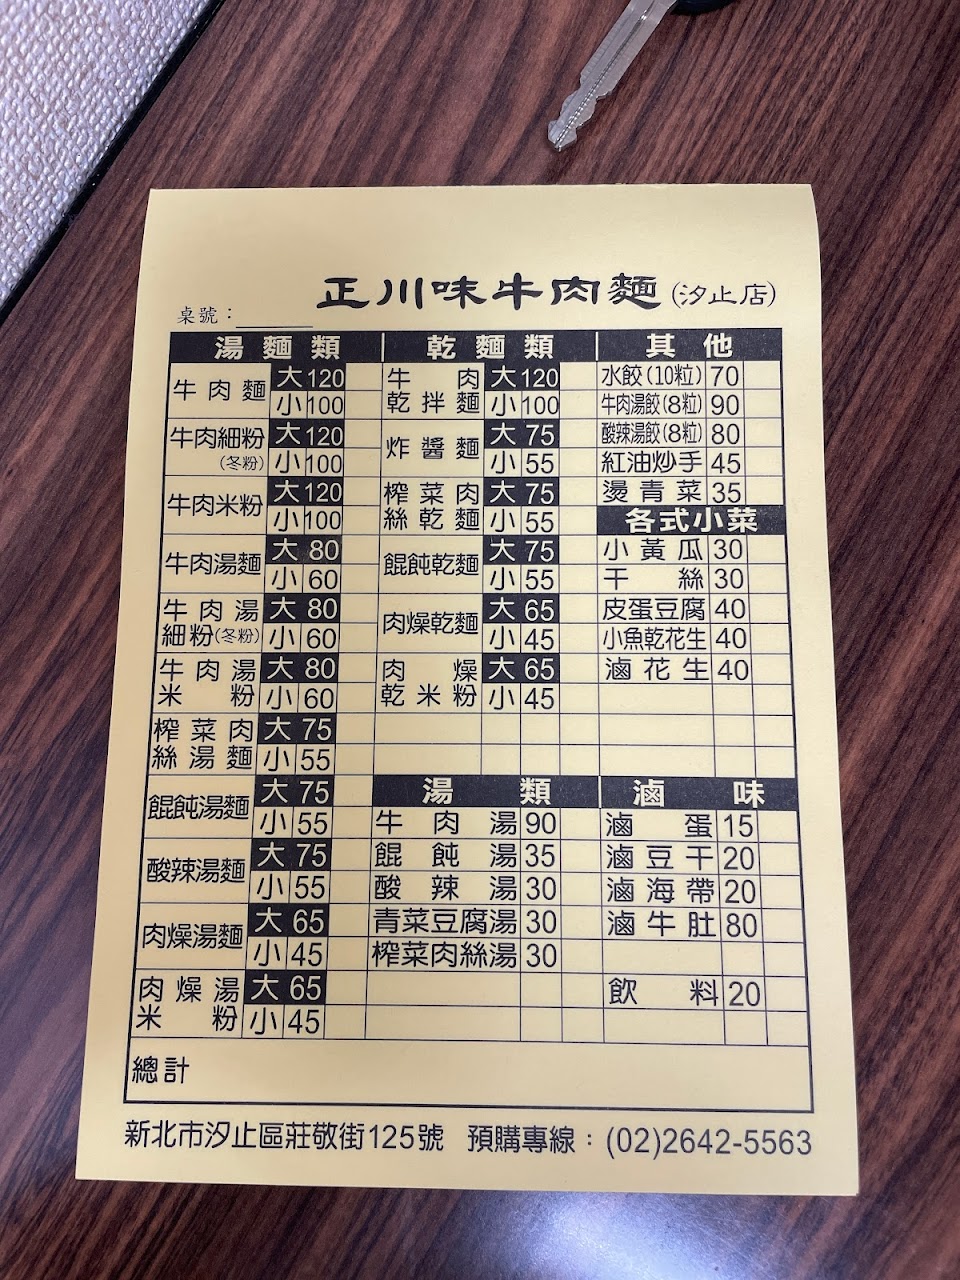 正川味牛肉麵(汐止店)
桌號：
湯麵類
牛肉麵 大 120
小 100
牛肉細粉(冬粉) 大 120
小 100
牛肉米粉 大 120
小 100
牛肉湯麵 大 80
小 60
牛肉湯細粉(冬粉) 大 80
小 60
牛肉湯米粉 大 80
小 60
榨菜肉絲湯麵 大 75
小 55
餛飩湯麵 大 75
小 55
酸辣湯麵 大 75
小 55
肉燥湯麵 大 65
小 45
肉燥湯米粉 大 65
小 45
乾麵類
牛肉乾拌麵 大 120
小 100
炸醬麵 大 75
小 55
榨菜肉絲乾麵 大 75
小 55
餛飩乾麵 大 75
小 55
肉燥乾麵 大 65
小 45
肉燥乾米粉 大 65
小 45
湯類
牛肉湯 90
餛飩湯 35
酸辣湯 30
青菜豆腐湯 30
榨菜肉絲湯 30
其他
水餃(10粒) 70
牛肉湯餃(8粒) 90
酸辣湯餃(8粒) 80
紅油炒手 45
燙青菜 35
各式小菜
小黃瓜 30
干絲 30
皮蛋豆腐 40
小魚乾花生 40
滷花生 40
滷味
滷蛋 15
滷豆干 20
滷海帶 20
滷牛肚 80
飲料 20
總計
新北市汐止區莊敬街125號 預購專線：(02)2642-5563